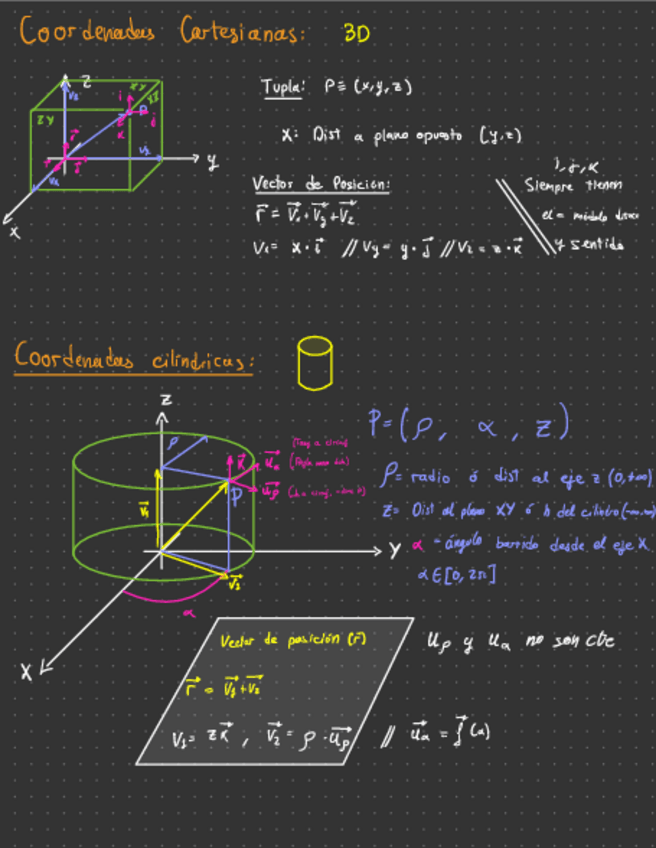 Coordenadas Cartesianas: 3D
Z
V₂
ZY
XY
P
i
j
k
Vx
y
x
Tupla: P ≡ (x,y,z)
X: Dist a plano opuesto (y,z)
Vector de Posición:
r = Vx + Vy + Vz
Vx = x·i // Vy = y·j // Vz = z·k
i, j, k
Siempre tienen
el = módulo
y sentido
Coordenadas cilíndricas:
Z
ρ
k
uα
uρ
P
V₁
V₂
Y
α
X
P = (ρ, α, z)
ρ = radio ó dist al eje z (0,+∞)
z = Dist al plano XY ó h del cilindro (-∞,∞)
α = ángulo barrido desde el eje X
α ∈ [0, 2π]
Vector de posición (r)
r = V₁ + V₂
V₁ = zk , V₂ = ρ · uρ // uα = f(α)
uρ y uα no son cte